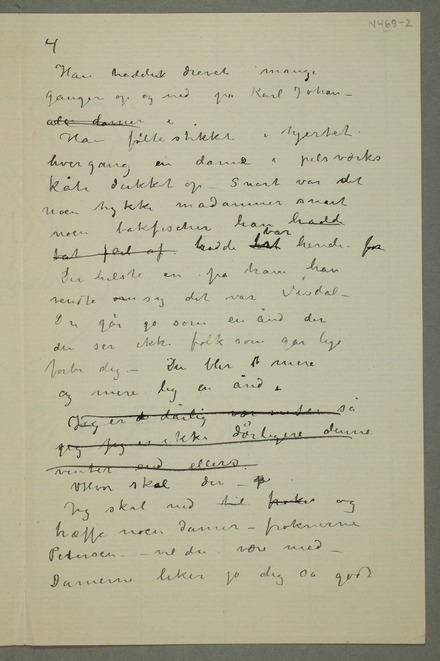 N 469-2
4
Han hadde drevet mange
ganger op og ned på Karl Johan –
alle damer i
Han følte stikket i hjertet
hvergang en dame i pelsværks
kåbe dukket op – Snart var det
noen tykke madammer snart
noen bakfischer han hadd
tat feil af. hadde var hende for
Der hilste en på ham han
vendte om sig det var
Du går jo som en ånd der
du ser ikke folk som går lige
forbi dig – Du blir mere
og mere lig en ånd
Jeg er dårlig så
jeg er ikke dårligere denne
vinter end ellers.
Hvor skal du –
Jeg skal ned til og
træffe noen damer – frøknerne
Petersen – vil du være med –
Damerne liker jo dig så godt